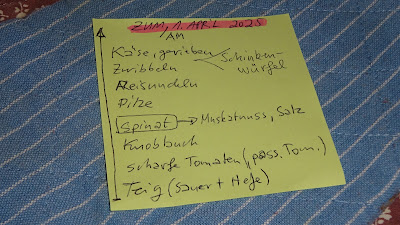 ZUM, 1. APRIL 2025
AM
Käse, gerieben
Schinken-
Zwibbeln
würfel
Reisnudeln
Pilze
Spinat → Muskatnuss, Salz
Knoblauch
scharfe Tomaten (, pass. Tom.)
Teig (Sauer + Hefe)